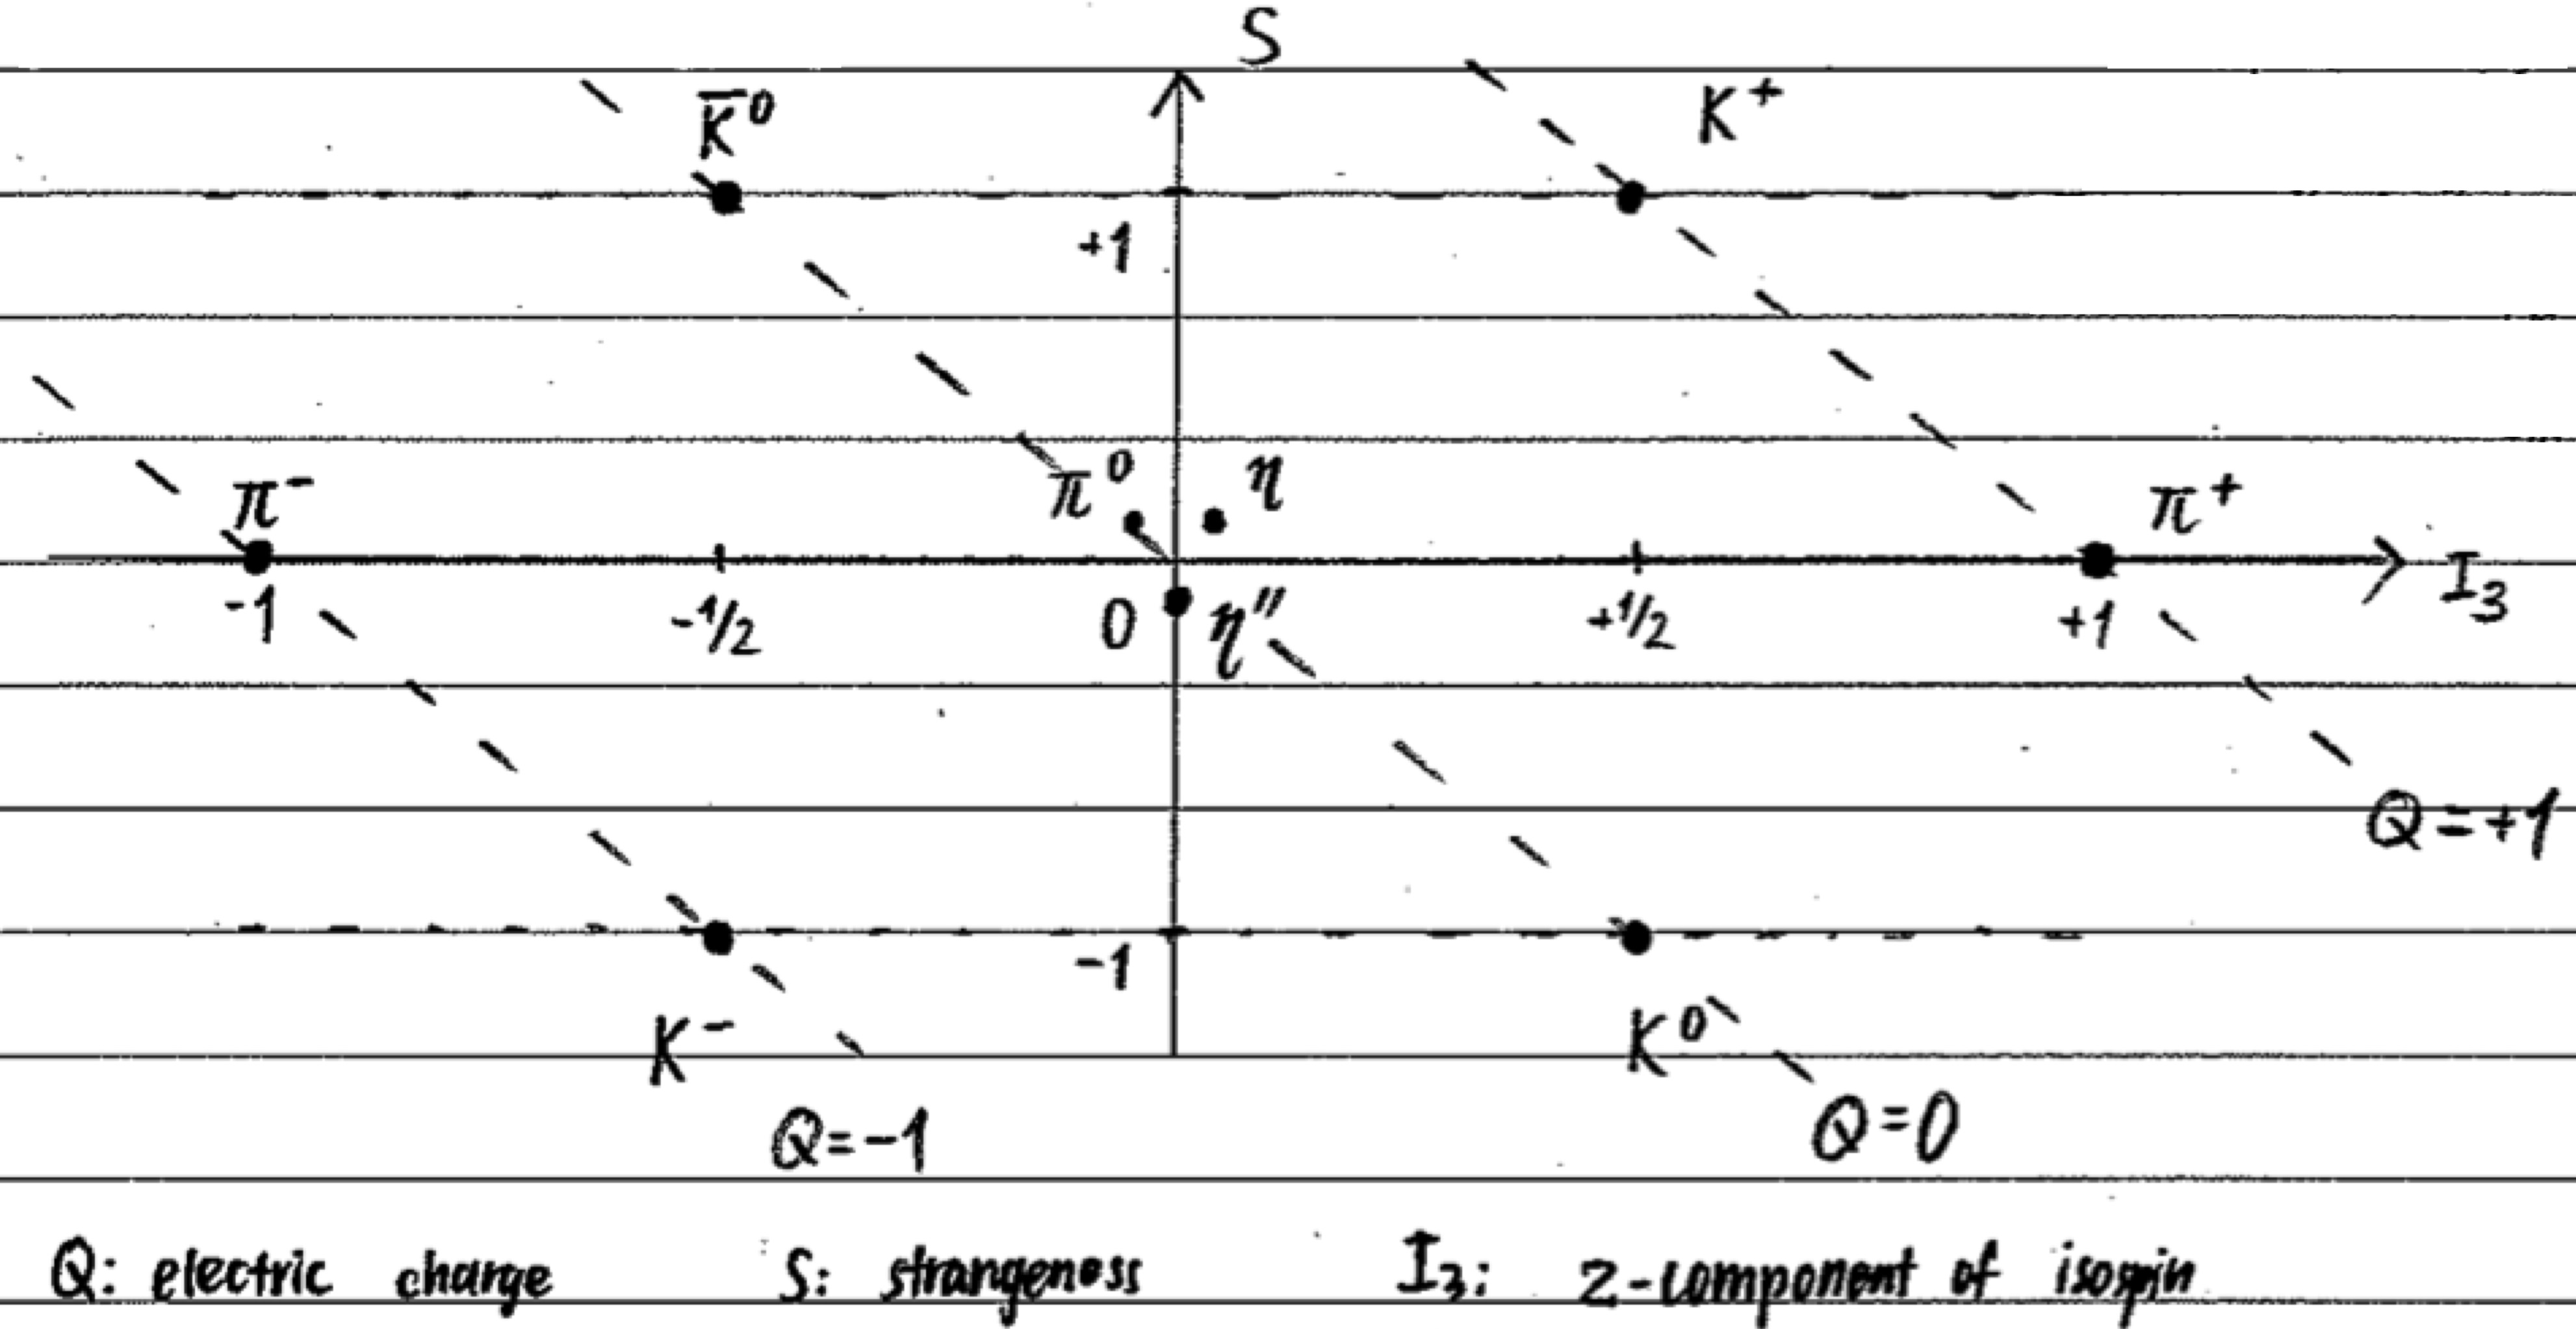 S
K̅⁰ K⁺
+1
π⁻ π⁰ η π⁺
-1 -1/2 0 η″ +1/2 +1 I₃
Q=+1
-1
K⁻ K⁰
Q=-1 Q=0
Q: electric charge S: strangeness I₃: z-component of isospin